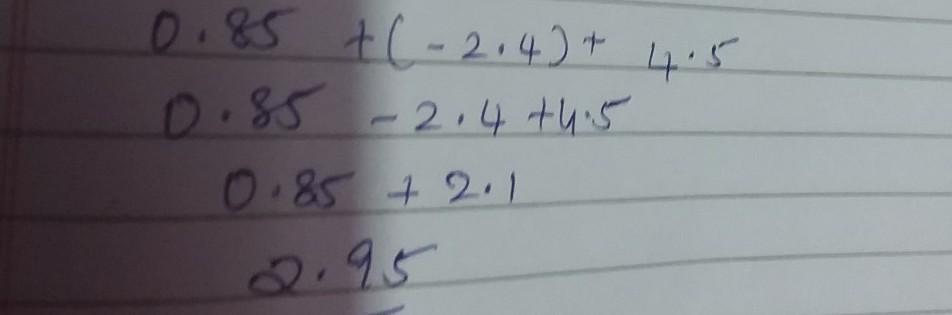 0.85 + (-2.4) + 4.5
0.85 - 2.4 + 4.5
0.85 + 2.1
2.95